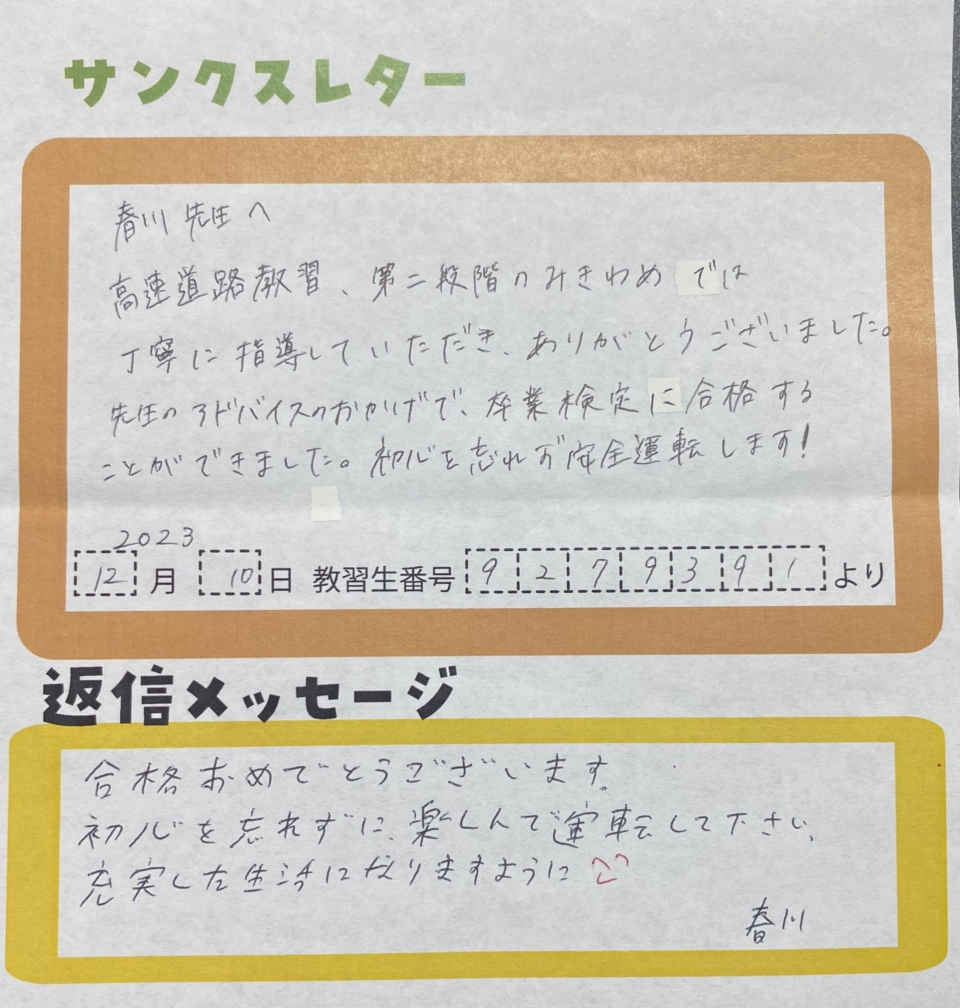 サンクスレター
春川 先生へ
高速道路教習、第二段階のみきわめでは
丁寧に指導していただき、ありがとうございました。
先生のアドバイスのおかげで、卒業検定に合格する
ことができました。初心を忘れず安全運転します!
2023
12月 10日 教習生番号 9279391より
返信メッセージ
合格おめでとうございます。
初心を忘れずに、楽しんで運転して下さい。
充実した生活になりますように
春川